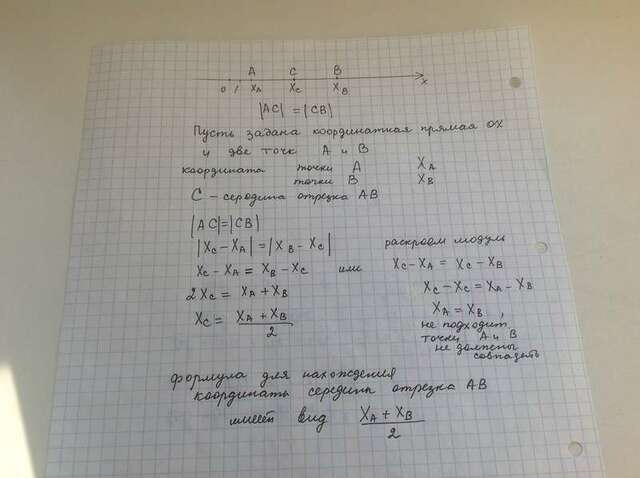 A C B
0 1 X_A X_C X_B x
|AC| = |CB|
Пусть задана координатная прямая ОХ
и две точк А и В
координата точки А X_A
точки В X_B
С – середина отрезка АВ
|AC|=|CB|
|X_C – X_A| = |X_B – X_C| раскроем модуль
X_C – X_A = X_B – X_C или X_C – X_A = X_C – X_B
2X_C = X_A + X_B X_C – X_C = X_A – X_B
X_C = (X_A + X_B)/2 X_A = X_B,
не подходит,
точки А и В
не должены
совпадать
формула для нахождения
координаты середины отрезка АВ
имеет вид (X_A + X_B)/2